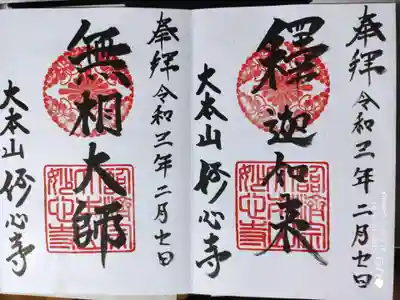 奉拝 令和二年二月七日
釋迦如来
大本山妙心寺
奉拝 令和二年二月七日
無相大師
大本山妙心寺